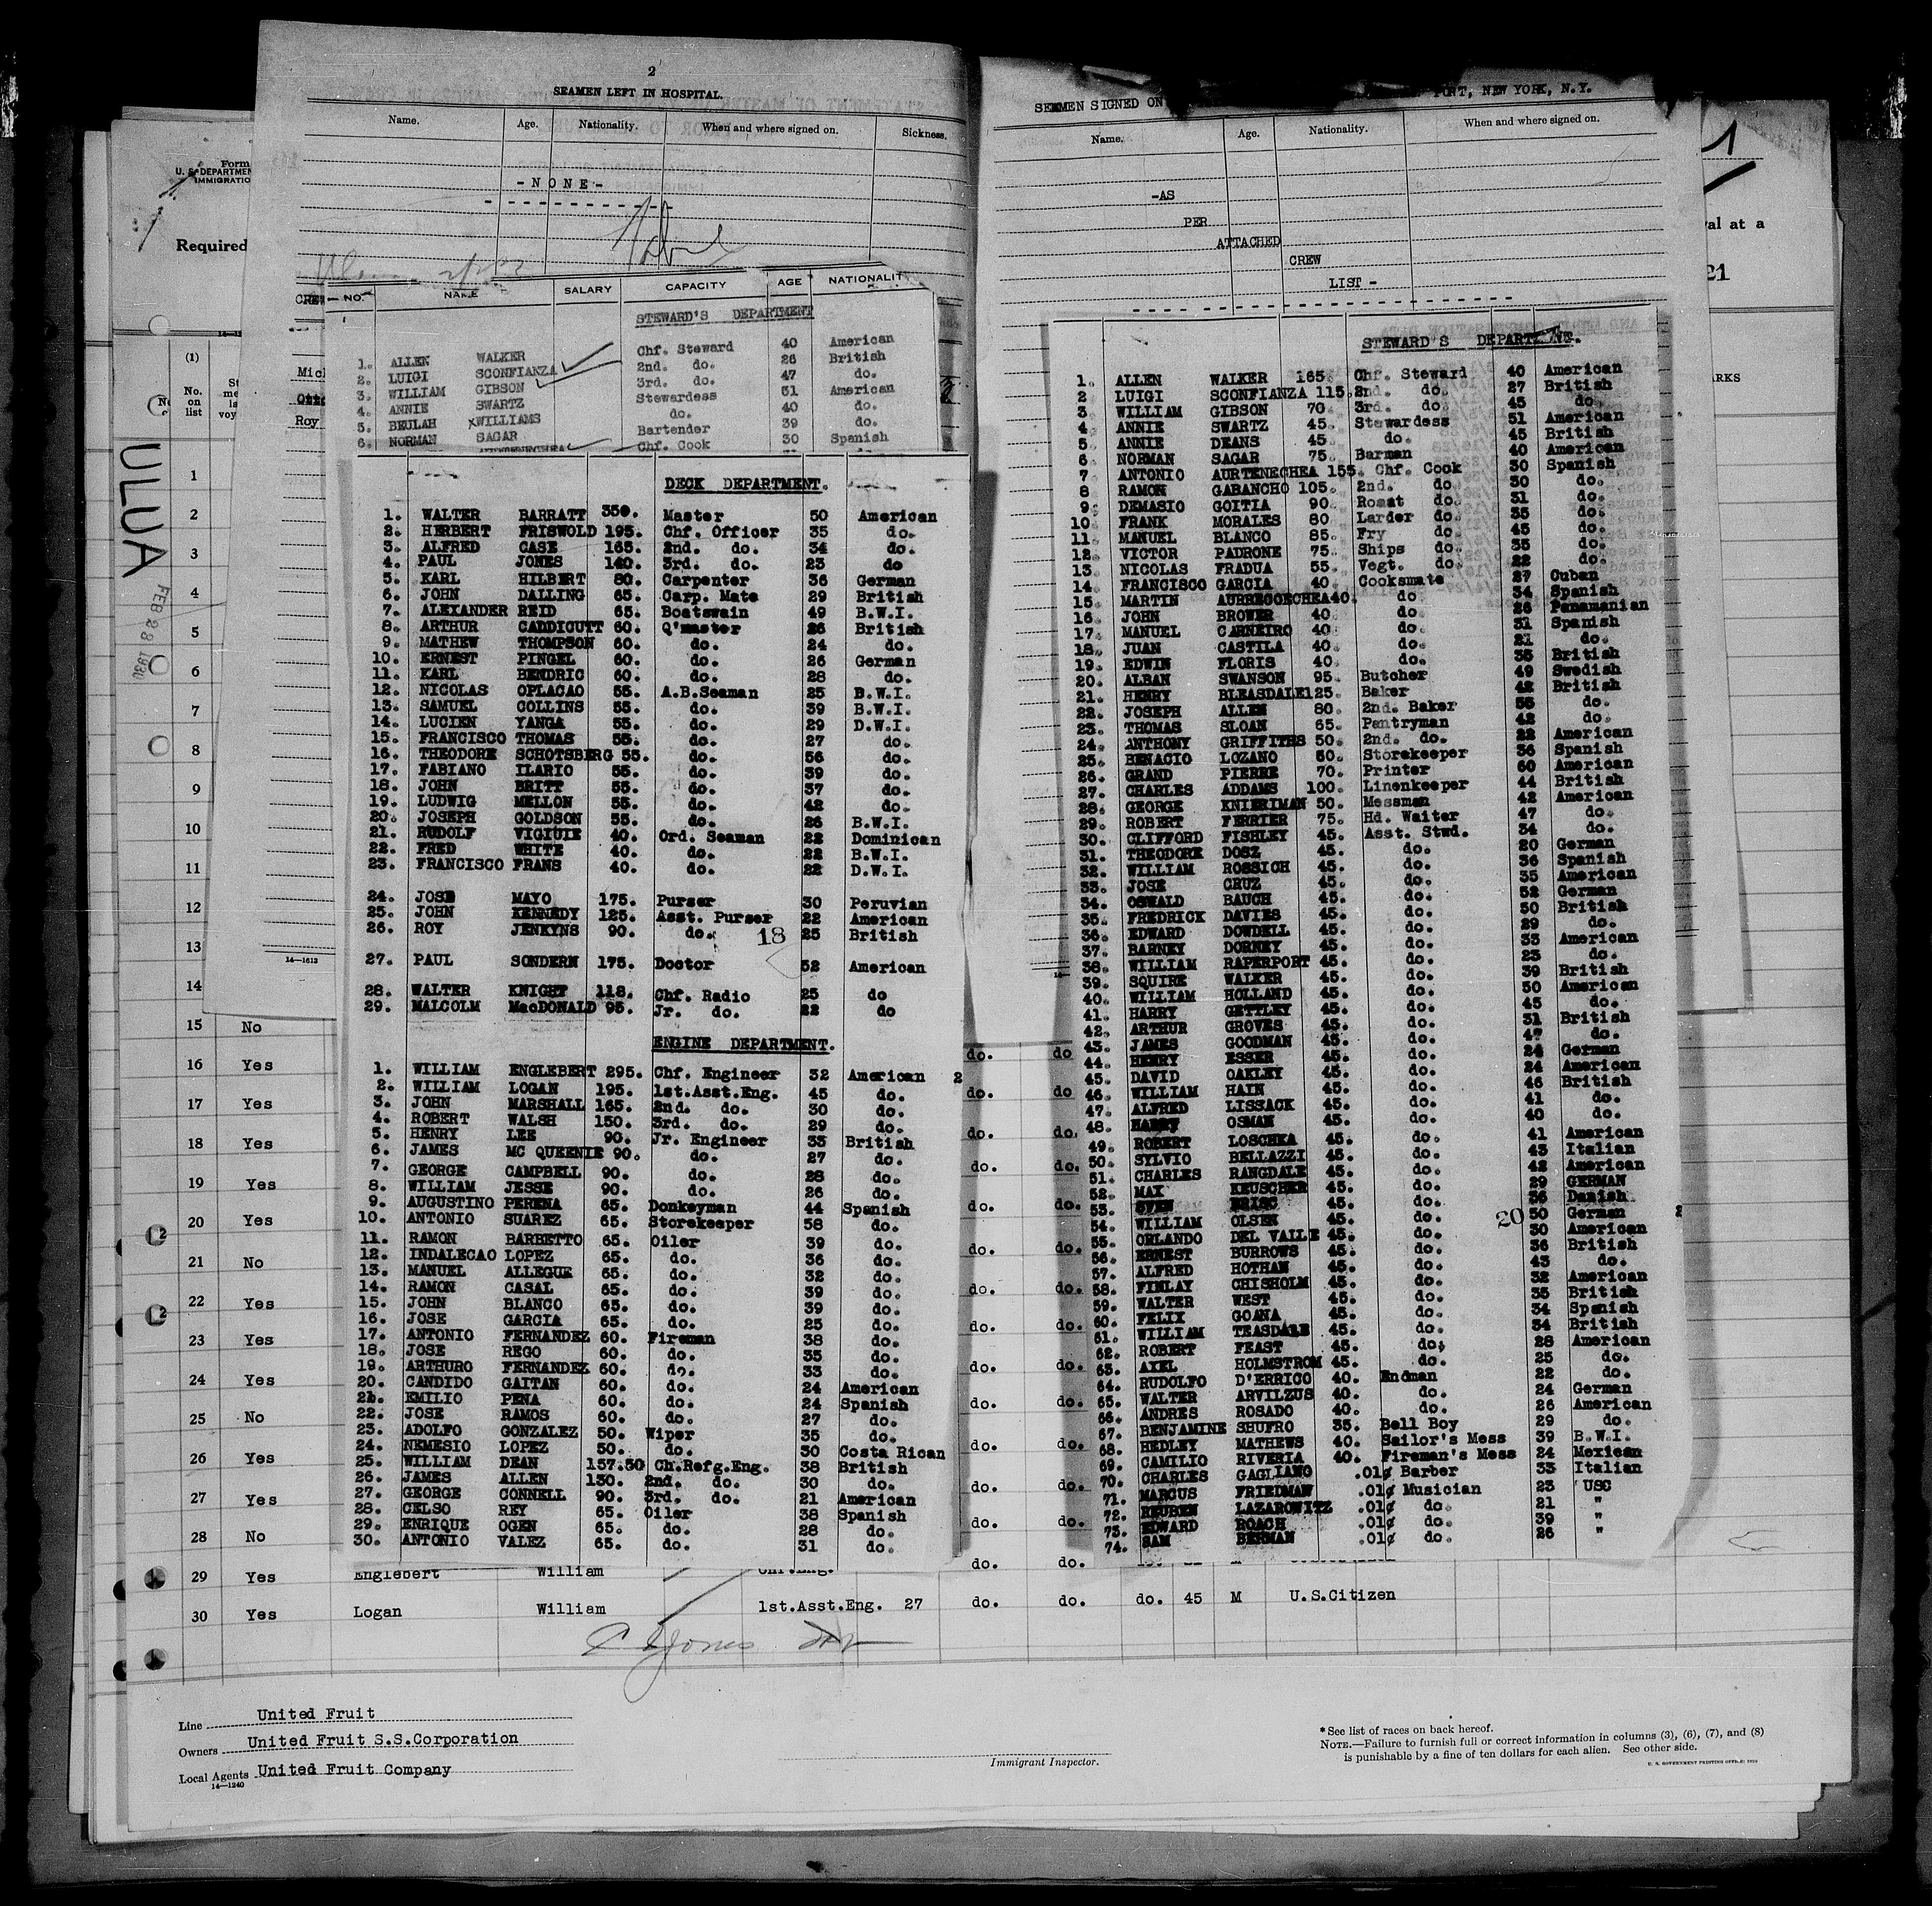 2
SEAMEN LEFT IN HOSPITAL.
Name. Age. Nationality. When and where signed on. Sickness.
-NONE-
NO. NAME SALARY CAPACITY AGE NATIONALIT
STEWARD'S DEPARTMENT
1. ALLEN WALKER Chf. Steward 40 American
2. LUIGI SCONFIANZA 2nd. do. 26 British
3. WILLIAM GIBSON 3rd. do. 47 do.
4. ANNIE SWARTZ Stewardess 51 American
5. BEULAH WILLIAMS do. 40 do.
6. NORMAN SAGAR Bartender 39 do.
Chf. Cook 30 Spanish
DECK DEPARTMENT.
1. WALTER BARRATT 350. Master 50 American
2. HERBERT FRISWOLD 195. Chf. Officer 35 do.
3. ALFRED CASE 165. 2nd. do. 34 do.
4. PAUL JONES 140. 3rd. do. 23 do
5. KARL HILBERT 80. Carpenter 36 German
6. JOHN DALLING 65. Carp. Mate 29 British
7. ALEXANDER REID 65. Boatswain 49 B.W.I.
8. ARTHUR CADDICUTT 60. Q'master 26 British
9. MATHEW THOMPSON 60. do. 24 do.
10. ERNEST PINGEL 60. do. 26 German
11. KARL BENDRIC 60. do. 28 do.
12. NICOLAS OPLACAO 55. A.B.Seaman 25 B.W.I.
13. SAMUEL COLLINS 55. do. 39 B.W.I.
14. LUCIEN YANGA 55. do. 29 D.W.I.
15. FRANCISCO THOMAS 55. do. 27 do.
16. THEODORE SCHOTSBERG 55. do. 56 do.
17. FABIANO ILARIO 55. do. 39 do.
18. JOHN BRITT 55. do. 37 do.
19. LUDWIG MELLON 55. do. 42 do.
20. JOSEPH GOLDSON 55. do. 26 B.W.I.
21. RUDOLF VIGIUIE 40. Ord. Seaman 22 Dominican
22. FRED WHITE 40. do. 22 B.W.I.
23. FRANCISCO FRANS 40. do. 22 D.W.I.
24. JOSE MAYO 175. Purser 30 Peruvian
25. JOHN KENNEDY 125. Asst. Purser 22 American
26. ROY JENKYNS 90. do. 18 25 British
27. PAUL SONDERN 175. Doctor 52 American
28. WALTER KNIGHT 118. Chf. Radio 25 do
29. MALCOLM MacDONALD 95. Jr. do. 22 do
ENGINE DEPARTMENT.
1. WILLIAM ENGLEBERT 295. Chf. Engineer 32 American
2. WILLIAM LOGAN 195. 1st.Asst.Eng. 45 do.
3. JOHN MARSHALL 165. 2nd. do. 30 do.
4. ROBERT WALSH 150. 3rd. do. 29 do.
5. HENRY LEE 90. Jr. Engineer 33 British
6. JAMES MC QUEENIE 90. do. 27 do.
7. GEORGE CAMPBELL 90. do. 28 do.
8. WILLIAM JESSE 90. do. 26 do.
9. AUGUSTINO PERENA 65. Donkeyman 44 Spanish
10. ANTONIO SUAREZ 65. Storekeeper 58 do.
11. RAMON BARBETTO 65. Oiler 39 do.
12. INDALECAO LOPEZ 65. do. 36 do.
13. MANUEL ALLEGUE 65. do. 32 do.
14. RAMON CASAL 65. do. 39 do.
15. JOHN BLANCO 65. do. 39 do.
16. JOSE GARCIA 65. do. 25 do.
17. ANTONIO FERNANDEZ 60. Fireman 38 do.
18. JOSE REGO 60. do. 35 do.
19. ARTHURO FERNANDEZ 60. do. 33 do.
20. CANDIDO GAITAN 60. do. 24 American
21. EMILIO PENA 60. do. 24 Spanish
22. JOSE RAMOS 60. do. 27 do.
23. ADOLFO GONZALEZ 50. Wiper 35 do.
24. NEMESIO LOPEZ 50. do. 30 Costa Rican
25. WILLIAM DEAN 157.50 Ch.Refg.Eng. 38 British
26. JAMES ALLEN 130. 2nd. do. 30 do.
27. GEORGE CONNELL 90. 3rd. do. 21 American
28. CELSO REY 65. Oiler 38 Spanish
29. ENRIQUE OGEN 65. do. 28 do.
30. ANTONIO VALEZ 65. do. 31 do.
SEAMEN SIGNED ON PORT, NEW YORK, N.Y.
Name. Age. Nationality. When and where signed on.
-AS
PER
ATTACHED
CREW
LIST -
STEWARD'S DEPARTMENT.
1. ALLEN WALKER 165. Chf. Steward 40 American
2 LUIGI SCONFIANZA 115. 2nd. do. 27 British
3. WILLIAM GIBSON 70. 3rd. do. 45 do.
4. ANNIE SWARTZ 45. Stewardess 51 American
5. ANNIE DEANS 45. do. 45 British
6. NORMAN SAGAR 75. Barman 40 American
7 ANTONIO AURTENECHEA 155. Chf. Cook 30 Spanish
8 RAMON GABANCHO 105. 2nd. do 30 do.
9. DEMASIO GOITIA 90. Roast do. 31 do.
10. FRANK MORALES 80 Larder do. 35 do.
11. MANUEL BLANCO 85. Fry do. 45 do.
12. VICTOR PADRONE 75. Ships do. 35 do.
13. NICOLAS FRADUA 55. Vegt. do. 22 do.
14. FRANCISCO GARCIA 40. Cooksmate 27 Cuban
15. MARTIN AURRECOECHEA 40. do. 34 Spanish
16. JOHN BROWER 40. do. 26 Panamanian
17. MANUEL CARNEIRO 40. do. 31 Spanish
18. JUAN CASTILA 40. do. 21 do.
19. EDWIN FLORIS 40. do. 35 British
20. ALBAN SWANSON 95. Butcher 49 Swedish
21. HENRY BLEASDALE 125. Baker 42 British
22. JOSEPH ALLEN 80. 2nd. Baker 55 do.
23. THOMAS SLOAN 65. Pantryman 42 do.
24. ANTHONY GRIFFITHS 50. 2nd. do. 22 American
25. BENACIO LOZANO 50. Storekeeper 36 Spanish
26. GRAND PIERRE 70. Printer 60 American
27. CHARLES ADDAMS 100. Linenkeeper 44 British
28. GEORGE KNIERIMAN 50. Messman 42 American
29. ROBERT FERRIER 75. Hd. Waiter 47 do.
30. CLIFFORD FISHLEY 45. Asst. Stwd. 34 do.
31. THEODORE DOSZ 45. do. 20 German
32. WILLIAM ROSSICH 45. do. 36 Spanish
33. JOSE CRUZ 45. do. 35 American
34. OSWALD BAUCH 45. do. 52 German
35. FREDRICK DAVIES 45. do. 50 British
36. EDWARD DOWDELL 45. do. 29 do.
37. BARNEY DORNEY 45. do. 33 American
38. WILLIAM RAPERPORT 45. do. 23 do.
39. SQUIRE WALKER 45. do. 39 British
40. WILLIAM HOLLAND 45. do. 50 American
41. HARRY GETTLEY 45. do. 45 do.
42. ARTHUR GROVES 45. do. 31 British
43. JAMES GOODMAN 45. do. 47 do.
44. HENRY ESSER 45. do. 24 German
45. DAVID OAKLEY 45. do. 24 American
46. WILLIAM HAIN 45. do. 46 British
47. ALFRED LISSACK 45. do. 41 do.
48. HARRY OSMAN 45. do. 40 do.
49. ROBERT LOSCHKA 45. do. 41 American
50. SYLVIO BELLAZZI 45. do. 43 Italian
51. CHARLES RANGDALE 45. do. 42 American
52. MAX KEUSCHER 45. do. 29 GERMAN
53. SVEN 45. do. 36 Danish
54. WILLIAM OLSEN 45. do. 20 50 German
55. ORLANDO DEL VAILE 45. do. 30 American
56. ERNEST BURROWS 45. do. 36 British
57. ALFRED HOTHAN 45. do. 43 do.
58. FINLAY CHISHOLM 45. do. 32 American
59. WALTER WEST 45. do. 35 British
60. FELIX GOANA 45. do. 34 Spanish
61. WILLIAM TEASDALE 45. do. 34 British
62. ROBERT FEAST 45. do. 28 American
63. AXEL HOLMSTROM 45. do. 25 do.
64. RUDOLFO D'ERRICO 40. Endman 22 do.
65. WALTER ARVILZUS 40. do. 24 German
66. ANDRES ROSADO 40. do. 26 American
67. BENJAMINE SHUFRO 35. Bell Boy 29 do.
68. HEDLEY MATHEWS 40. Sailor's Mess 39 B.W.I.
69. CAMILIO RIVERIA 40. Fireman's Mess 24 Mexican
70. CHARLES GAGLIANO .01¢ Barber 33 Italian
71. MARCUS FRIEDMAN .01¢ Musician 23 USC
72. REUBEN LAZAROWITZ .01¢ do. 21 "
73. EDWARD ROACH .01¢ do. 39 "
74. SAM BERMAN .01¢ do. 26 "
Form
U. S. DEPARTMEN
IMMIGRATIO
Required
val at a
21
CREW
(1)
No. on list
ARKS
Roy
ULUA
FEB 28 1930
14-1613
1
2
3
4
5
6
7
8
9
10
11
12
13
14
15 No
16 Yes do. do
17 Yes do. do
18 Yes do. do.
19 Yes do. do.
20 Yes do. do.
21 No do. do.
22 Yes do. do.
23 Yes do. do.
24 Yes do. do.
25 No do. do.
26 Yes do. do.
27 Yes do. do.
28 No do. do.
29 Yes Englebert William Chf.Eng. do. do.
30 Yes Logan William 1st.Asst.Eng. 27 do. do. do. 45 M U.S.Citizen
Line United Fruit
Owners United Fruit S.S.Corporation
Local Agents United Fruit Company
14-1240
Immigrant Inspector.
*See list of races on back hereof.
NOTE.—Failure to furnish full or correct information in columns (3), (6), (7), and (8)
is punishable by a fine of ten dollars for each alien. See other side.
U. S. GOVERNMENT PRINTING OFFICE: 1929